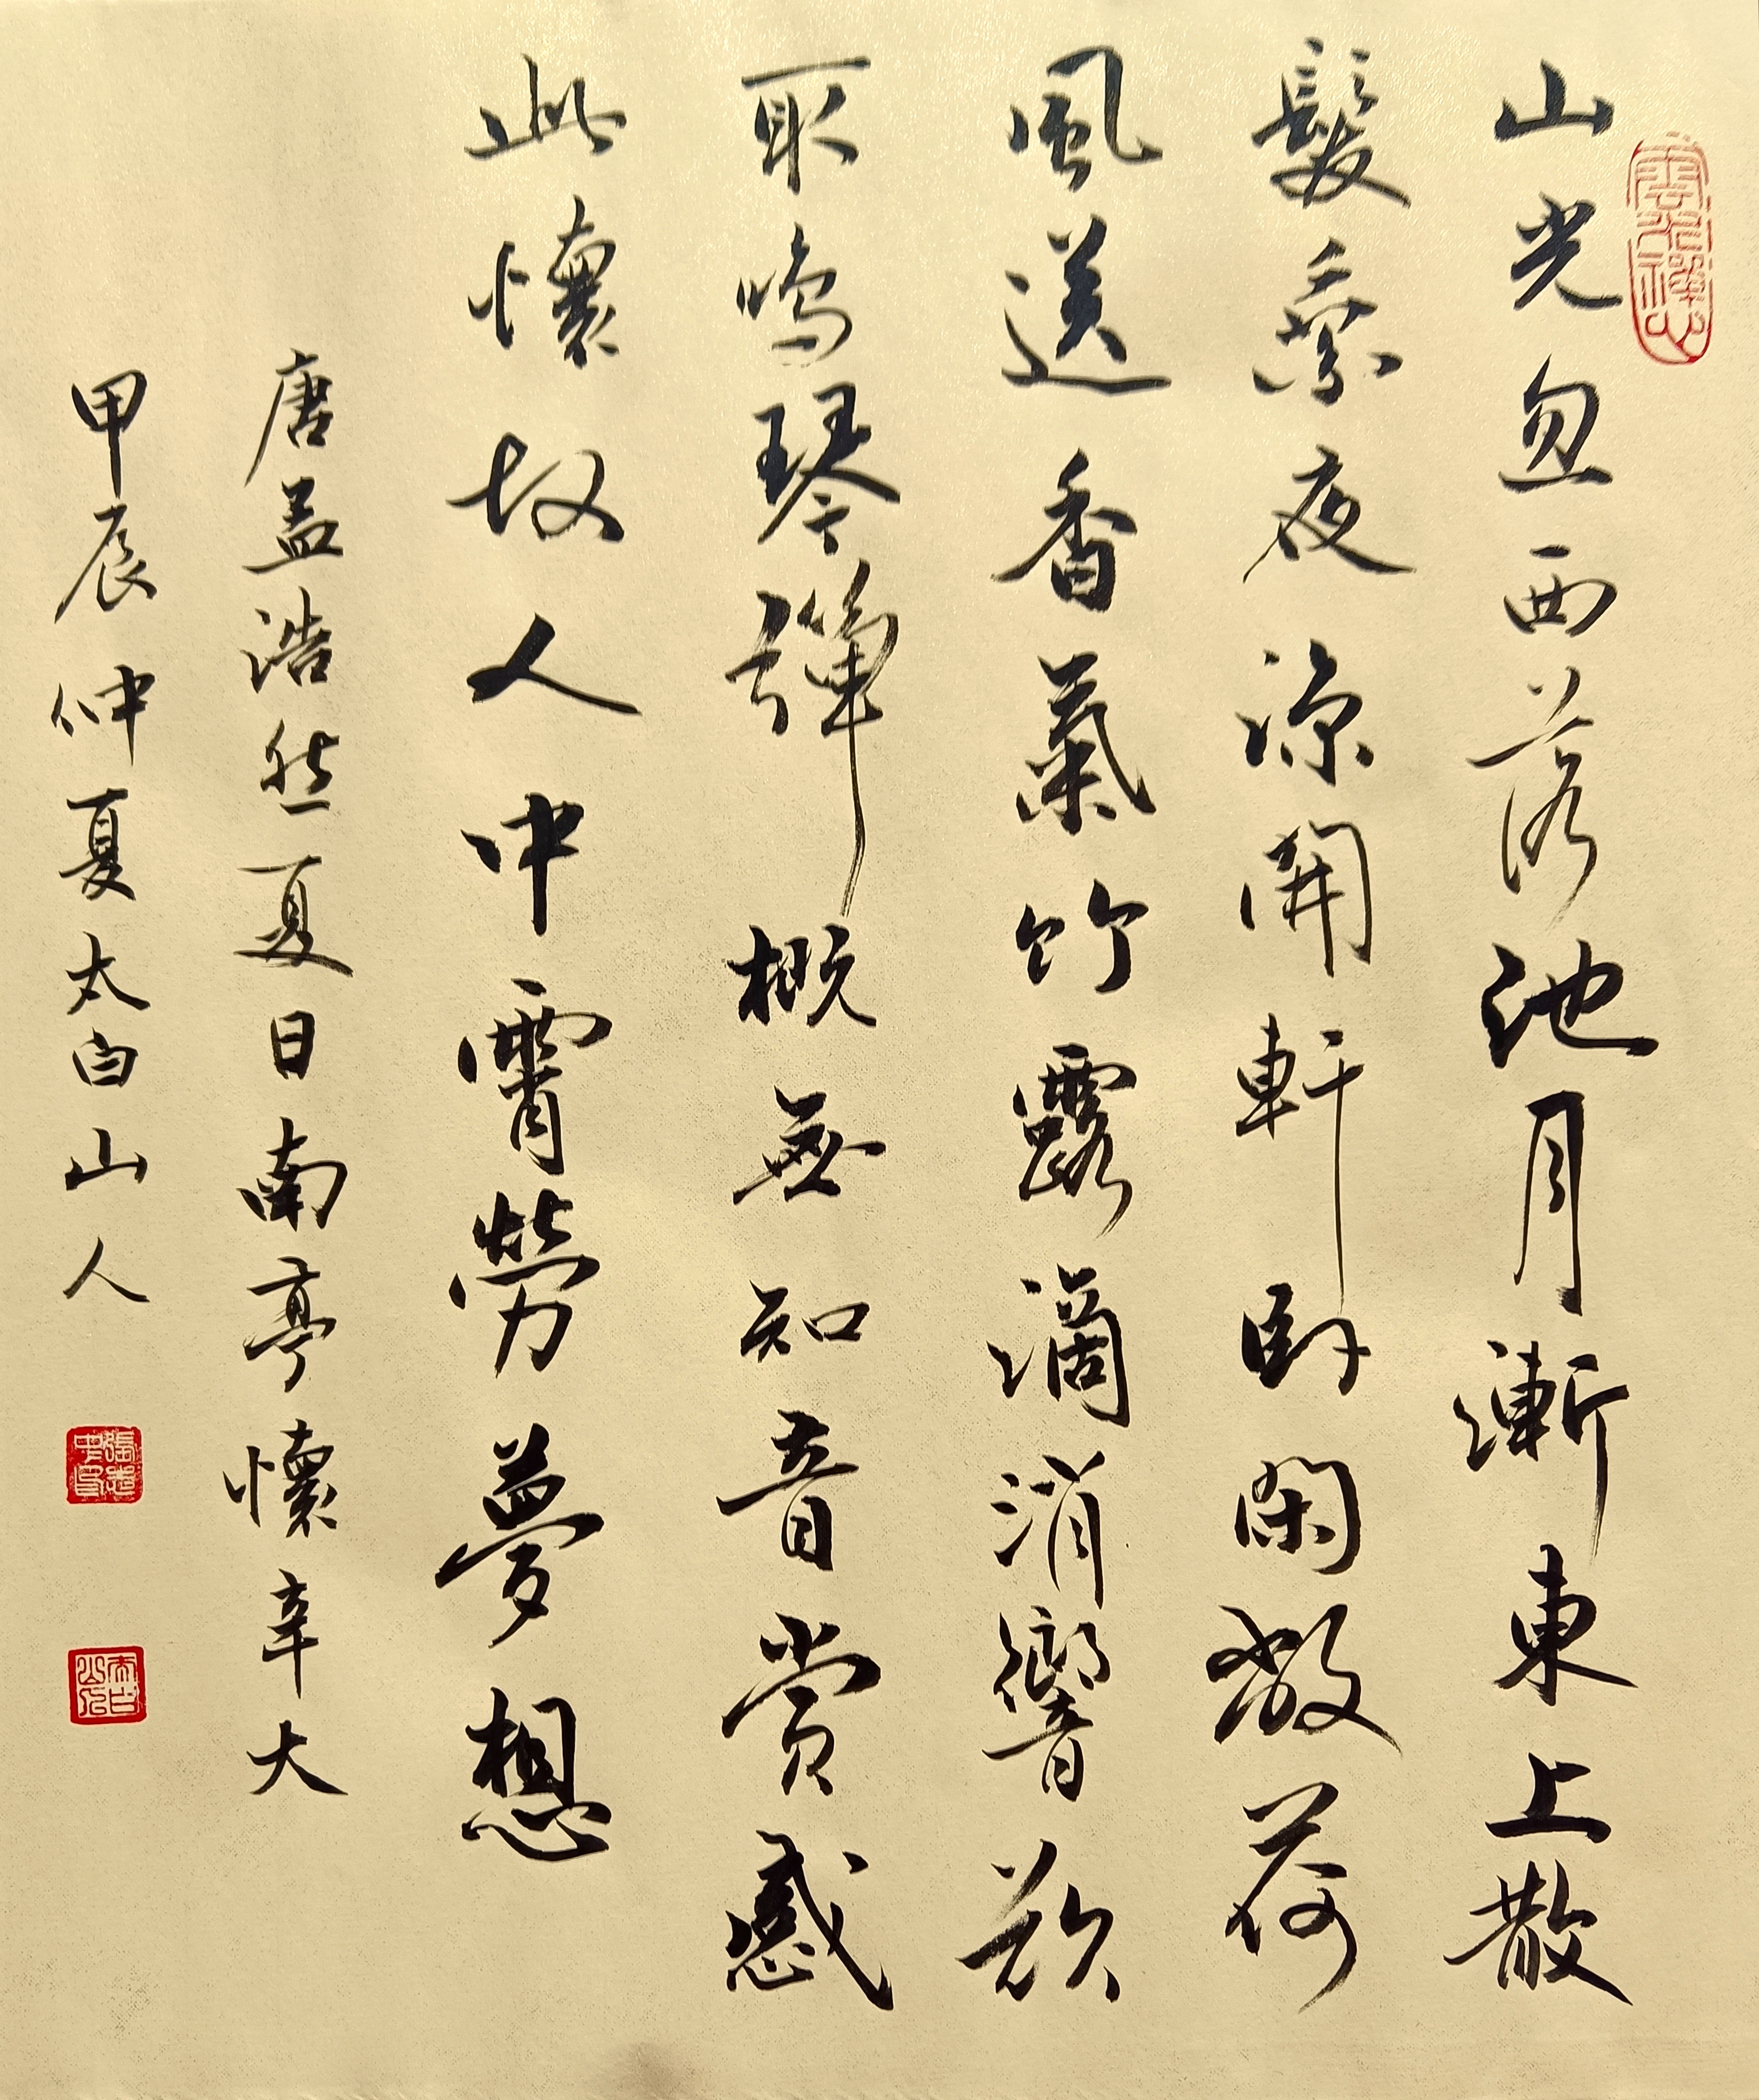 雲水禪心
山光忽西落池月漸東上散
髮乘夜涼開軒臥閑敞荷
風送香氣竹露滴消響欲
取鳴琴彈概無知音賞感
此懷故人中霄勞夢想
唐孟浩然夏日南亭懷辛大
甲辰仲夏太白山人
太白山人